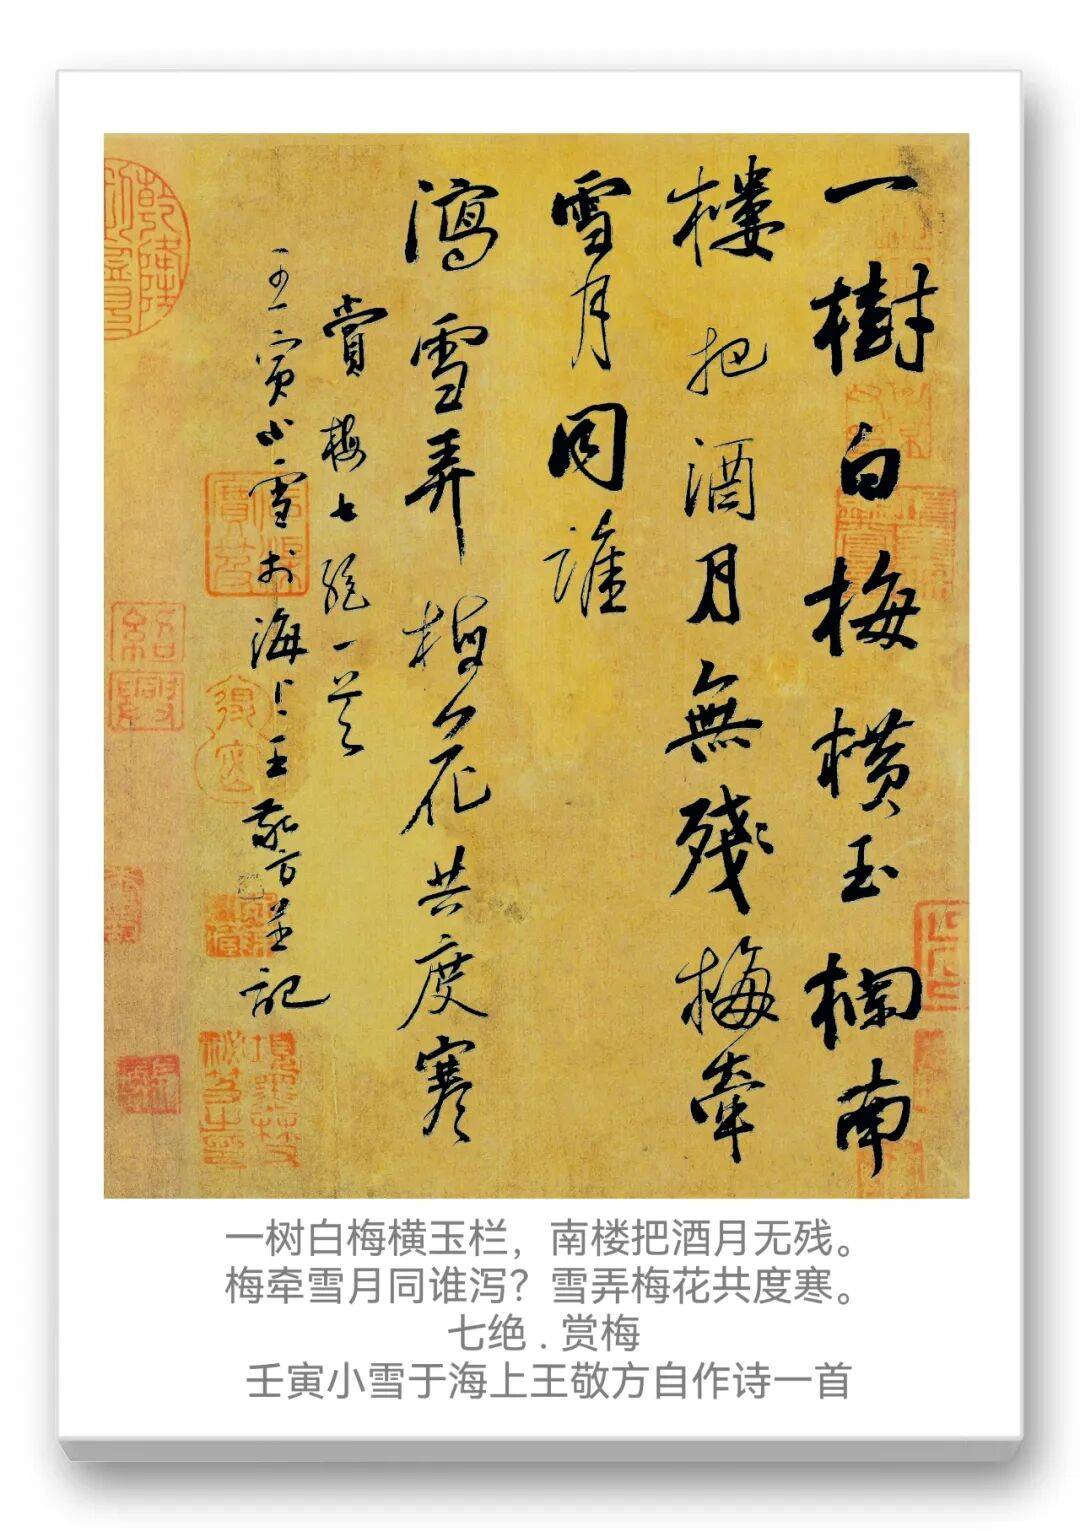 一樹白梅橫玉欄南
樓把酒月無殘梅牽
雪月同誰
瀉雪弄梅花共度寒
賞梅七絕一首
壬寅小雪於海上王敬方並記
一树白梅横玉栏，南楼把酒月无残。
梅牵雪月同谁泻？雪弄梅花共度寒。
七绝 . 赏梅
壬寅小雪于海上王敬方自作诗一首